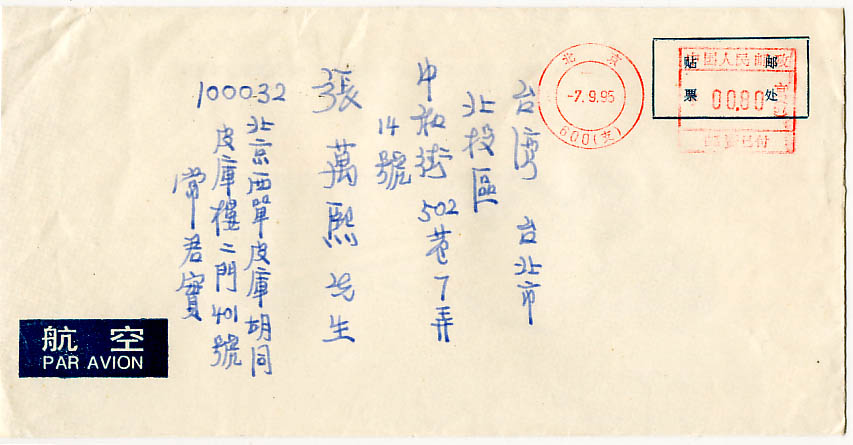 台灣 台北市
北投區
中和街502巷7弄
14號
張萬熙先生
100032
北京西單皮庫胡同
皮庫樓二門401號
常君實
北京
-7.9.95
600(支)
貼票
邮处
中国人民邮政
00.80
邮资已付
航空
PAR AVION